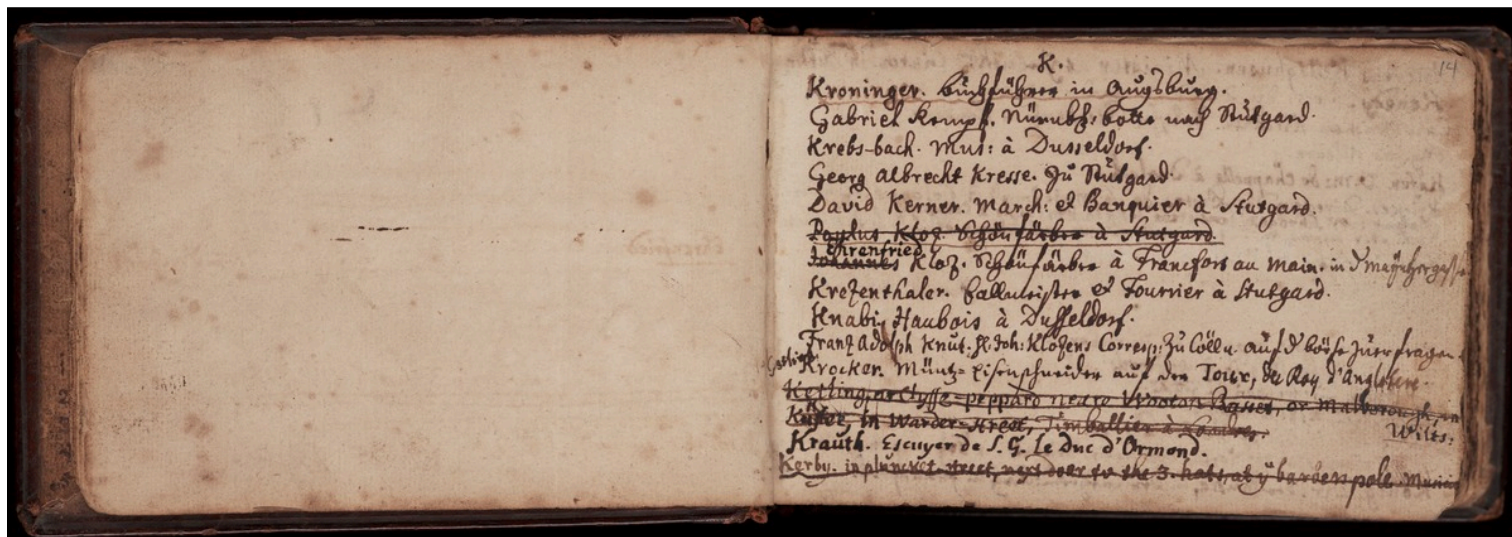 14
K.
Kroninger. Buchführer in Augsburg.
Gabriel Kempf. Nürnbg: botte nach Stutgard.
Krebs-bach. Mus: à Dusseldorf.
Georg Albrecht Kresse. Zu Stutgard.
David Kerner. March: et Banquier à Stutgard.
Paulus Kloz. Schönfärber à Stutgard.
Ehrenfried
Johannes Kloz. Schönfärber à Francfort au Main. in d
Krezenthaler. Ballmeister et Fourrier à Stutgard.
Knabi, Haubois à Dusseldorf.
Franz Adolph Knut. Joh: Klozens Corresp: Zu Cölln. auf d börse zu erfragen.
Krocker. Müntz-Eisenschneider auf den Tour, du Roy d'Angleterre.
Ketling, at Clyffe-peppard neare Wooton Basset, or Malborough, in
Wilts:
in Warder-street, Timballier à Londres.
Krauth. Escuyer de S. G. Le Duc d'Ormond.
Kerby. in pluncket-street, next door to the 3. hats, at ye barbers pole.